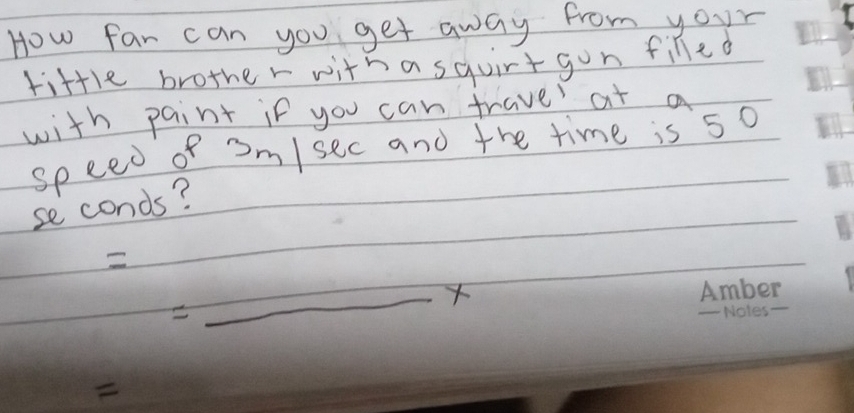 How far can you get away from your
little brother with a squirt gun filled
with paint if you can travel at a
speed of 3m/sec and the time is 50
se conds?
=
= ________ x
Amber
—Notes—
=